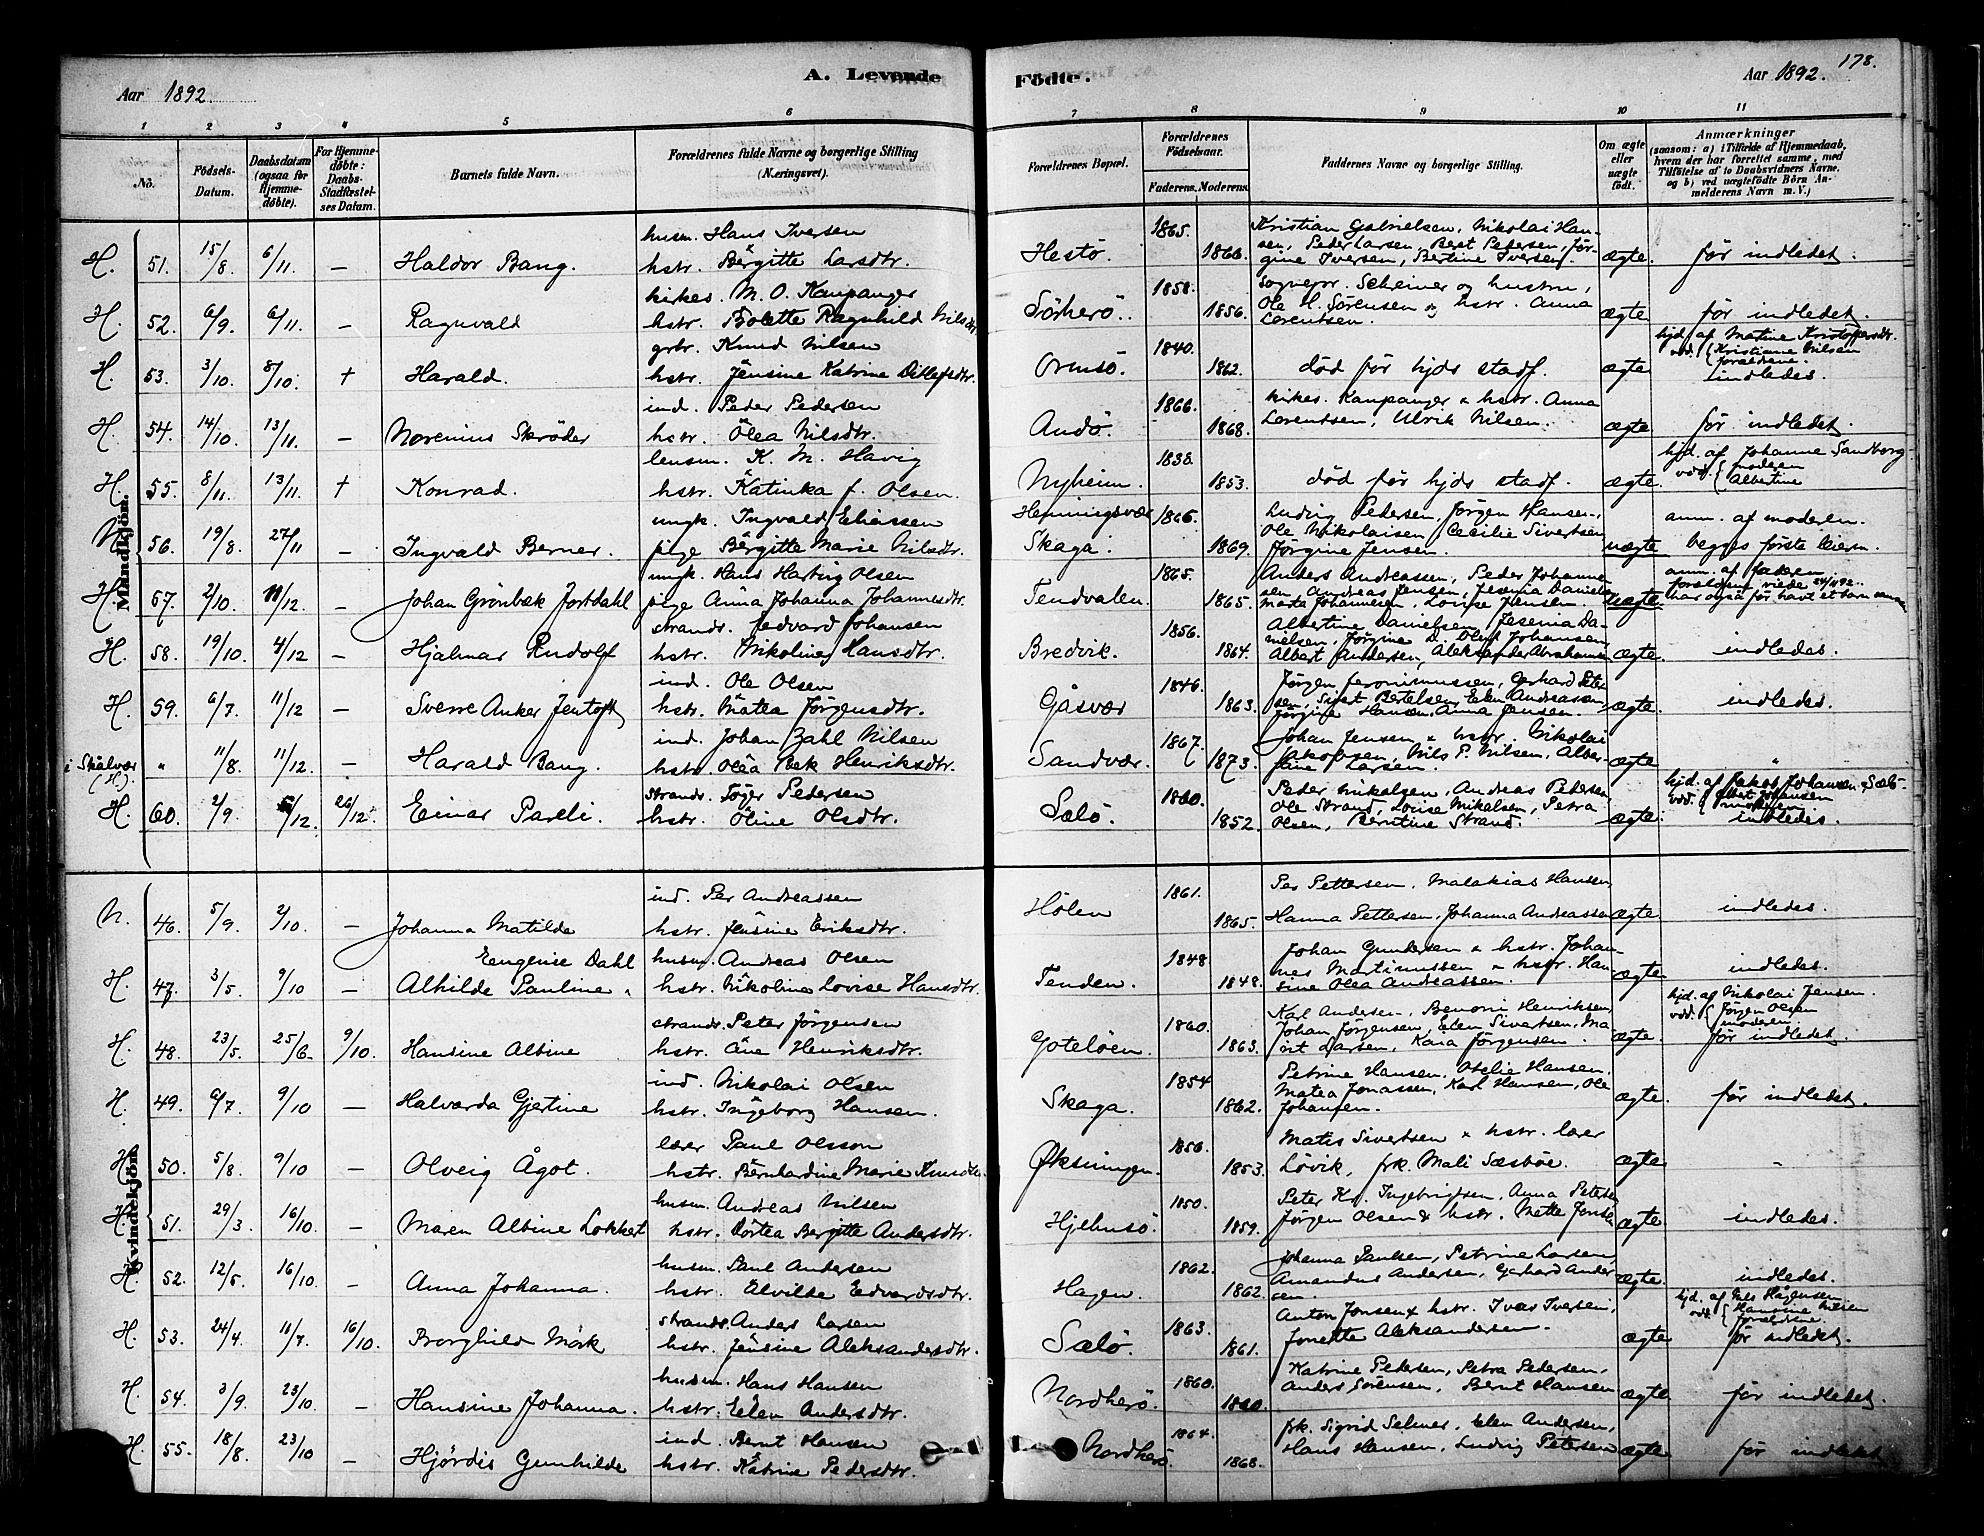 A. Levende Födte.
Aar 1892.
Aar 1892. 178.
1 2 3 4 5 6 7 8 9 10 11
No.
Födsels-Datum.
Daabsdatum (ogsaa for Hjemmedöbte).
For Hjemmedöbte: Daabs-Stadfæstelses Datum.
Barnets fulde Navn.
Forældrenes fulde Navne og borgerlige Stilling (Næringsvei).
Forældrenes Bopæl.
Forældrenes Födselsaar.
Faderens. Moderens.
Faddernes Navne og borgerlige Stilling.
Om ægte eller uægte födt.
Anmærkninger (saasom: a) i Tilfælde af Hjemmedaab, hvem der har forrettet samme, med Tilföielse af to Daabsvidners Navne, og b) ved uægtefödte Börn Anmelderens Navn m.V.)
Mandkjön.
H. 51. 15/8. 6/11. — Haldor Bang. husm. Hans Iversen
hstr. Bergitte Larsdtr. Hestö. 1865. 1866. Kristian Gabrielsen, Nikolai Hansen, Peder Larsen, Beret Pedersen, Jörgine Iversen, Bertine Iversen. ægte. för indledet.
H. 52. 6/9. 6/11. — Ragnvald kirkes. M. O. Kaupanger
hstr. Bolette Ragnhild Nilsdtr Sörherö. 1858. 1856. Sognepr. Scheiner og hustru, Ole H. Sörensen og hstr. Anna Lorentsen. ægte för indledet.
H. 53. 3/10. 8/10. + Harald. grbr. Knud Nilsen
hstr. Jensine Katrine Ditlefsdtr. Ormsö. 1840. 1862. död för hjds stadf. ægte hjd. af Matine Kristoffersdtr. vdd. Kristiane Nilsen forældrene. indledes.
H. 54. 14/10. 13/11. — Norenius Skröder ind. Peder Pedersen
hstr. Olea Nilsdtr. Andö. 1866. 1868. kirkes. Kaupanger & hstr. Anna Lorentsen, Ulrik Nilsen. ægte. för indledet.
H. 55. 8/11. 13/11. + Konrad. lensm. K. M. Havig
hstr. Katinka f. Olsen. Nyheim. 1838. 1853. död för hjds stadf. ægte. hjd. af Johanne Sandborg vdd. moderen Albertine
N. 56. 19/8. 27/11 — Ingvald Berner. ungk. Ingvald Eliassen
pige Bergitte Marie Nilsdtr. Henningsvær Skaga. 1866. 1869. Ludvig Pedersen, Jörgen Hansen, Ole Nikolaisen, Cecilie Sivertsen, Jörgine Jensen. uægte anm. af moderen. begges förste leierm.
H. 57. 2/10. 11/12. — Johan Grönbæk Jortdahl ungk. Hans Hartvig Olsen
pige Anna Johanna Johannesdtr. Tendvalen. 1865. 1865. Anders Andreassen, Peder Johannesen, Andreas Jensen, Jesenia Danielsen, Marta Johannesen, Lovise Jensen. uægte. anm. af faderen. forældrene viede 24/11 92. har også för havt et barn sammen
H. 58. 19/10. 4/12 — Hjalmar Rudolf strands. Jedvard Johansen
hstr. Nikoline Hansdtr. Bredvik. 1856. 1864. Albertine Danielsen, Jesenia Danielsen, Jörgine D. Oluf Johansen, Albert Andersen, Aleksander Abrahamsen ægte. indledes.
H. 59. 6/7. 11/12 — Sverre Anker Jentoft ind. Ole Olsen
hstr. Matea Jörgensdtr. Gåsvær 1846. 1863. Jörgen Jeronimussen, Gerhard Petersen, Sivert Bertelsen, Elen Andreassen, Jörgine Hansen, Anna Jensen. ægte. indledes.
i Skålvær (H). " 11/8. 11/12. — Harald Bang. ind. Johan Zahl Nilsen
hstr. Olea Bek Henriksdtr. Sandvær. 1867. 1873. Johan Jensen & hstr. Nikolai Jakobsen, Nils P. Nilsen, Albertine Larsen. ægte "
H. 60. 2/9. /12. 26/12. Einar Pareli. strands. Töger Pedersen
hstr. Oline Olsdtr. Sælö. 1860. 1852. Peder Mikalsen, Andreas Pedersen, Ole Strand, Lovise Mikalsen, Petra Olsen, Berntine Strand. ægte. hjd. af Jakob Johansen Sælö. vdd. Albert Johansen moderen indledes.
Kvindekjön.
N. 46. 5/9. 2/10. — Johanna Matilde ind. Per Andreassen
hstr. Jensine Eriksdtr. Hölen 1861. 1865. Per Pettersen, Malakias Hansen, Hanna Pettersen, Johanna Andreassen ægte. indledes.
H. 47. 3/5. 9/10 — Eengenise Dahl
Alhilde Pauline. husm. Andreas Olsen
hstr. Nikoline Lovise Hansdtr. Tenden. 1848 1848. Johan Gundersen & hstr. Johannes Martinussen & hstr. Hansine Olea Andreassen. ægte. indledes.
H. 48. 23/5. 25/6. 9/10. Hansine Albine strands. Peter Jörgensen
hstr. Ane Henriksdtr. Goteløen. 1860. 1863. Karl Andersen, Benoni Henriksen, Johan Jörgensen, Elen Sivertsen, Marit Larsen, Kaia Jörgensen. ægte. hjd. af Nikolai Jensen. vdd. Jörgen Olsen moderen. för indledet.
H. 49. 6/7. 9/10 — Halvarda Gjertine ind. Nikolai Olsen
hstr. Ingeborg Hansen. Skaga. 1854 1862. Petrine Hansen, Otelie Hansen, Matea Jonassen, Karl Hansen, Ole Johansen. ægte. för indledet.
H. 50. 5/8. 9/10 — Olveig Ågot. lærer Paul Olsson
hstr. Bernhardine Marie Knudsdtr. Øksningen. 1856. 1853. Matis Sivertsen & hstr. lærer Lövik, frk. Mali Sæsböe. ægte. "
H. 51. 29/3. 16/10. — Maren Albine Lokkert husm. Andreas Nilsen
hstr. Dortea Bergitte Andersdtr. Hjelmsö. 1850. 1859. Peter Kr. Ingebrigtsen, Anna Petersen, Jörgen Olsen & hstr. Mette Jonsen ægte. indledes.
H. 52. 12/5. 16/10. — Anna Johanna. husm. Paul Andersen
hstr. Elvilde Edvardsdtr. Hagen. 1862. 1862. Johanna Paulsen, Petrine Larsen, Amandus Andersen, Gerhard Andersen. ægte. indledes.
H. 53. 24/4. 11/7. 16/10. Borghild Mörk strands. Anders Larsen
hstr. Jensine Aleksandersdtr. Sælö. 1863. 1861. Anton Jonsen & hstr. Ivar Iversen, Jonette Aleksandersen. ægte hjd. af Nils Hagensen vdd. Hansine Nilsen forældrene för indledet.
H. 54. 3/9. 23/10. — Hansine Johanna. husm. Hans Hansen
hstr. Elen Andersdtr. Nordherö. 1860. 1860. Katrine Pedersen, Petra Pedersen, Anders Sörensen, Bernt Hansen ægte. för indledet.
H. 55. 18/8. 23/10 — Hjördis Gunhilde ind. Bernt Hansen
hstr. Katrine Pedersdtr. Nordherö. 1864. 1868. frk. Sigrid Selmer, Elen Andersen, Hans Hansen, Ludvig Petersen ægte. för indledet